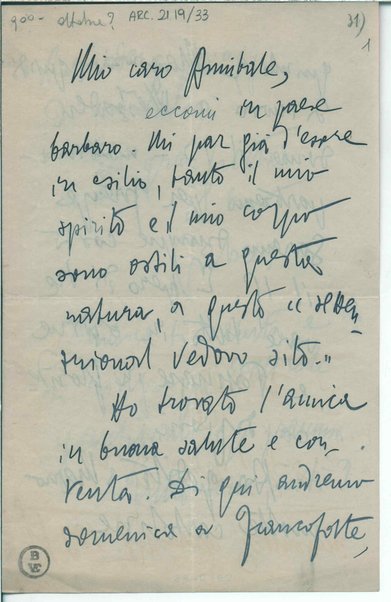 900 - ottobre? ARC. 21 19/33 31)
1
Mio caro Annibale,
eccomi in paese
barbaro. Mi par già d'essere
in esilio, tanto il mio
spirito e il mio corpo
sono ostili a questa
natura, a questo «setten-
trional vedovo sito.»
Ho trovato l'amica
in buona salute e con-
tenta. Di qui andremo
domenica a Francoforte,
B
VE